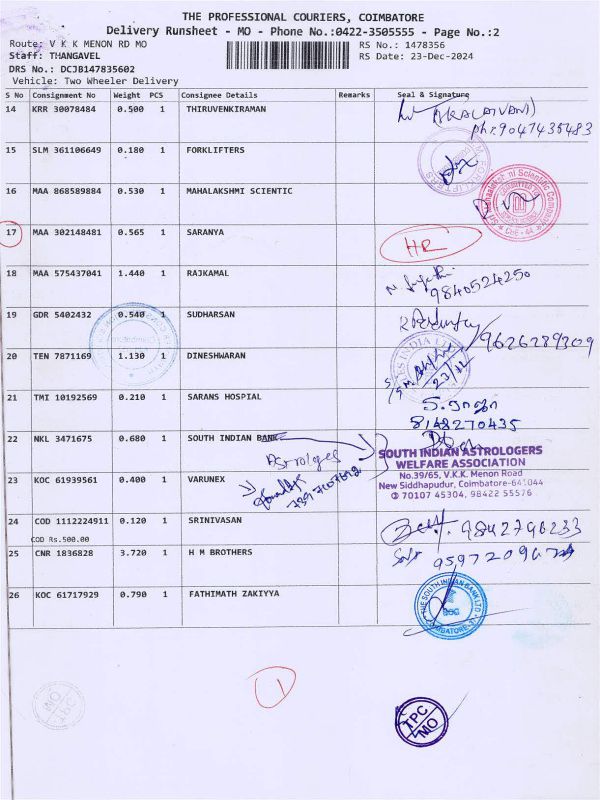 THE PROFESSIONAL COURIERS, COIMBATORE
Delivery Runsheet - MO - Phone No.:0422-3505555 - Page No.:2
Route: V K K MENON RD MO
RS No.: 1478356
Staff: THANGAVEL
RS Date: 23-Dec-2024
DRS No.: DCJB147835602
Vehicle: Two Wheeler Delivery
S No Consignment No Weight PCS Consignee Details Remarks Seal & Signature
14 KRR 30078484 0.500 1 THIRUVENKIRAMAN
(KALAIVANI)
Ph: 9047435483
15 SLM 361106649 0.180 1 FORKLIFTERS
16 MAA 868589884 0.530 1 MAHALAKSHMI SCIENTIC
17 MAA 302148481 0.565 1 SARANYA
HR
18 MAA 575437041 1.440 1 RAJKAMAL
9840524250
19 GDR 5402432 0.540 1 SUDHARSAN
9626289309
20 TEN 7871169 1.130 1 DINESHWARAN
23/12
21 TMI 10192569 0.210 1 SARANS HOSPIAL
8148270435
22 NKL 3471675 0.680 1 SOUTH INDIAN BANK
Astrologes
SOUTH INDIAN ASTROLOGERS
WELFARE ASSOCIATION
No.39/65, V.K.K. Menon Road
New Siddhapudur, Coimbatore-641044
70107 45304, 98422 55576
23 KOC 61939561 0.400 1 VARUNEX
24 COD 1112224911 0.120 1 SRINIVASAN
COD Rs.500.00
9842796233
25 CNR 1836828 3.720 1 H M BROTHERS
26 KOC 61717929 0.790 1 FATHIMATH ZAKIYYA
THE SOUTH INDIAN BANK LTD
1
TPC
MO
TPC
MO